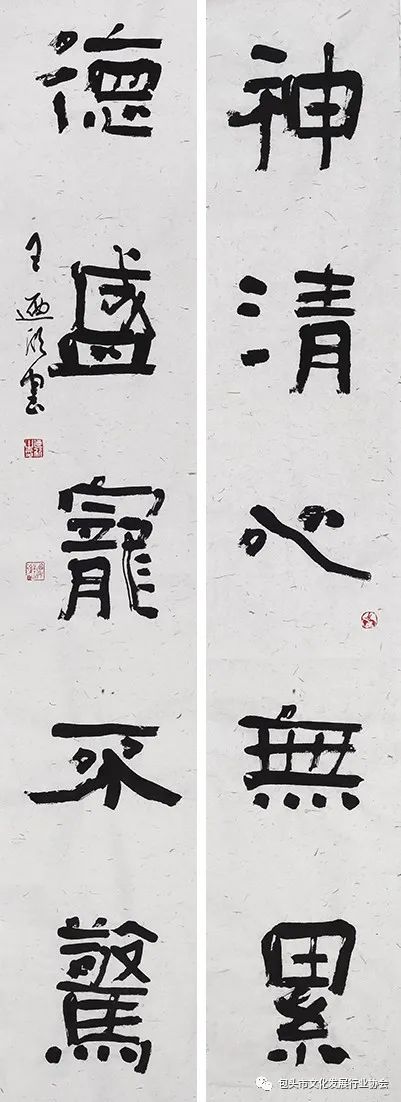 神清心無累
德盛寵不驚
王遡欣書
包头市文化发展行业协会